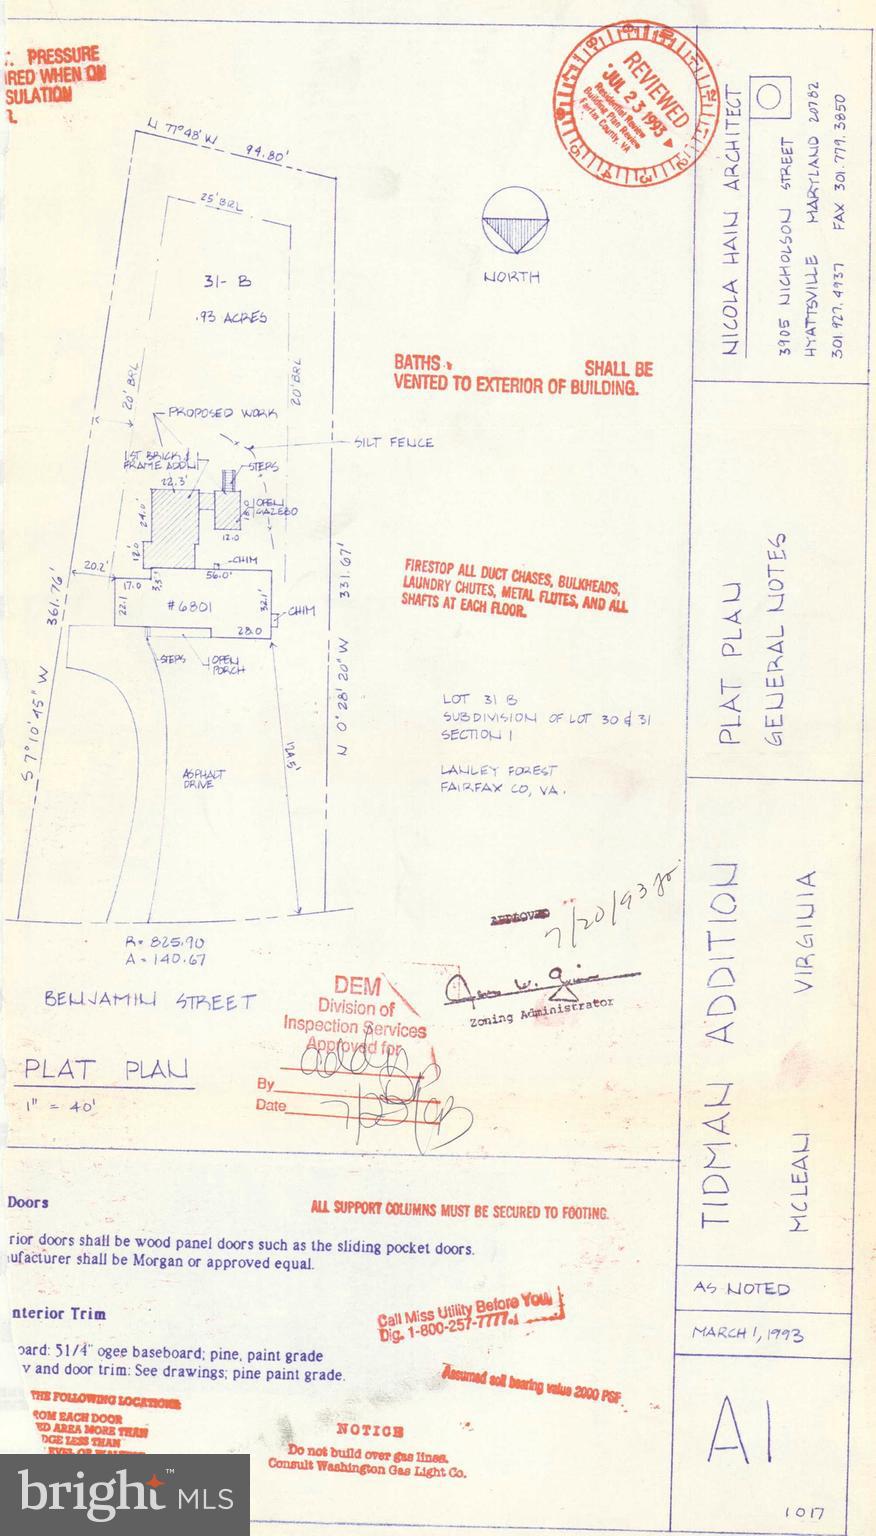 PRESSURE
RED WHEN ON
SULATION
REVIEWED
JUL 23 1993
Residential Review
Building Plan Review
Fairfax County, VA
N 77° 48' W
94.80'
25' BRL
31- B
.93 ACRES
20' BRL
20' BRL
NORTH
BATHS SHALL BE
VENTED TO EXTERIOR OF BUILDING.
PROPOSED WORK
SILT FENCE
1ST BRICK &
FRAME ADDN
22.3'
STEPS
OPEN
GAZEBO
24.0'
12.0
12.0
CHIM
56.0'
20.2'
17.0
22.1
#6801
32.1'
28.0
CHIM
STEPS
OPEN
PORCH
361.76'
S 7° 10' 45" W
331.67'
N 0° 28' 20" W
ASPHALT
DRIVE
FIRESTOP ALL DUCT CHASES, BULKHEADS,
LAUNDRY CHUTES, METAL FLUTES, AND ALL
SHAFTS AT EACH FLOOR.
LOT 31 B
SUBDIVISION OF LOT 30 & 31
SECTION 1
LANLEY FOREST
FAIRFAX CO, VA.
R= 825.90
A= 140.67
BENJAMIN STREET
PLAT PLAN
1" = 40'
APPROVED
7/20/93
Zoning Administrator
DEM
Division of
Inspection Services
Approved for
By
Date
NICOLA HAIN ARCHITECT
3905 NICHOLSON STREET
HYATTSVILLE MARYLAND 20782
301.927.4937 FAX 301.779.3850
PLAT PLAN
GENERAL NOTES
TIDMAN ADDITION
MCLEAN VIRGINIA
AS NOTED
MARCH 1, 1993
A1
1017
Doors
ALL SUPPORT COLUMNS MUST BE SECURED TO FOOTING.
rior doors shall be wood panel doors such as the sliding pocket doors.
ufacturer shall be Morgan or approved equal.
nterior Trim
oard: 5 1/4" ogee baseboard; pine, paint grade
v and door trim: See drawings; pine paint grade.
Call Miss Utility Before You
Dig. 1-800-257-7777.
Assumed soil bearing value 2000 PSF
THE FOLLOWING LOCATIONS
ROM EACH DOOR
ED AREA MORE THAN
DGE LESS THAN
NOTICE
Do not build over gas lines.
Consult Washington Gas Light Co.
bright MLS